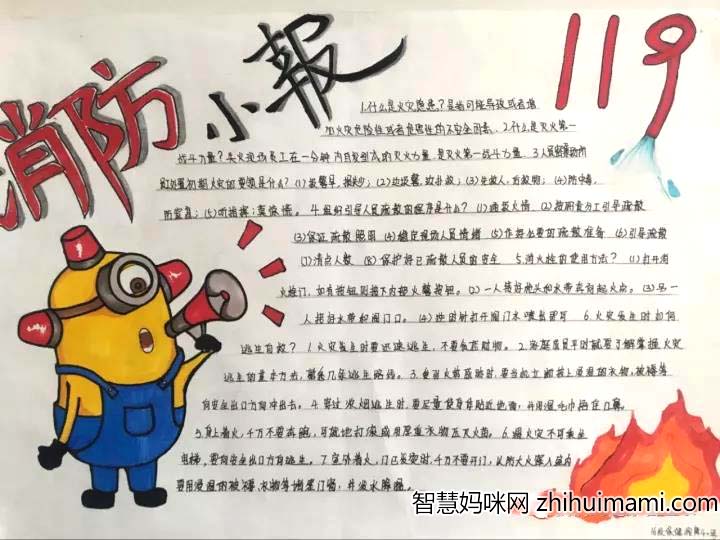 消防
小報
119
1.什么是火灾隐患?是指可能导致或者增
加火灾危险性或者危害性的不安全因素. 2.什么是灭火第一
战斗力量?失火现场员工在一分钟内自发形成的灭火力量,是灭火第一战斗力量. 3.人员密集场所
和处置初期火灾的要领是什么?(1)报警早,损失少;(2)边报警,边扑救;(3)先救人,后救物;(4)防中毒,
防窒息;(5)听指挥;莫惊慌。4.组织引导人员疏散的程序是什么?(1)通报火情 (2)按职责分工引导疏散
(3)保证疏散照明 (4)稳定现场人员情绪 (5)作好必要的疏散准备 (6)引导疏散
(7)清点人数 (8)保护好已疏散人员的安全 5.消火栓的使用方法?(1)打开消
火栓门,如有按钮则按下内部火警按钮。(2)一人接好枪头和水带奔向起火点。(3)另一
人接好水带和阀门口。(4)逆时针打开阀门水喷出即可 6.火灾发生时如何
逃生自救?1.火灾发生时要迅速逃生,不要贪恋财物。2.家庭成员平时就要了解掌握火灾
逃生的基本方法,熟悉几条逃生路线。3.受到火势威胁时,要当机立断披上浸湿的衣物、被褥等
向安全出口方向冲出去。4.穿过浓烟逃生时,要尽量使身体贴近地面,并用湿毛巾捂住口鼻。
5.身上着火,千万不要奔跑,可就地打滚或用厚重衣物压灭火苗。6.遇火灾不可乘坐
电梯,要向安全出口方向逃生。7.室外着火,门已发烫时,千万不要开门,以防大火窜入室内
要用浸湿的被褥、衣物等堵塞门窗,并泼水降温。
智慧妈咪网 zhihuimami.com